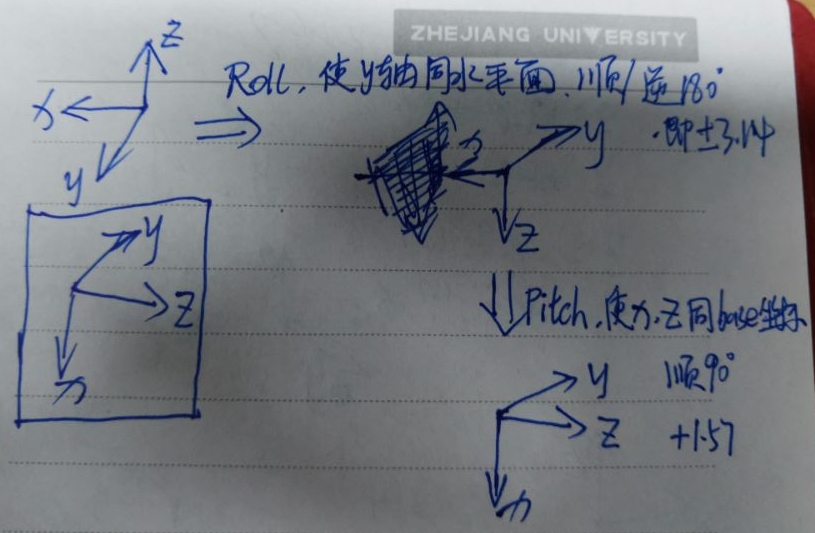 ZHEJIANG UNIVERSITY
z
Roll, 使y轴同水平面、顺/逆180°
x
y
⇒
x
y
·即±3.14
z
y
z
x
⇓
Pitch、使x、z同base坐标
y
顺90°
z
+1.57
x